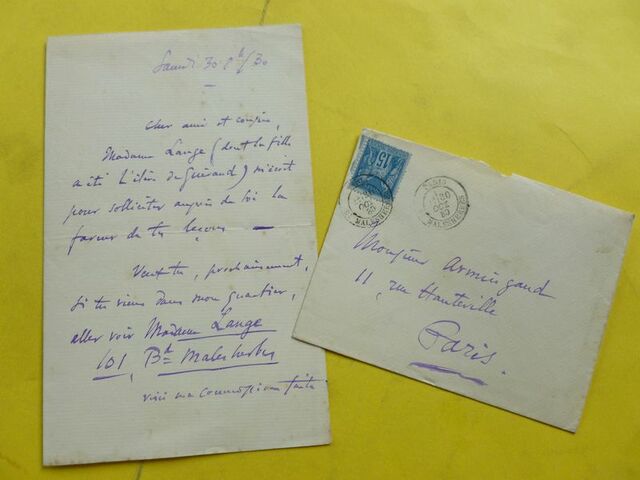 Samedi 30 8b/80
Cher ami et confrère,
Madame Lange (dont la fille
a été l'élève de Guéraud) m'écrit
pour solliciter auprès de toi la
faveur de tes leçons —
Veux tu, prochainement,
si tu viens dans mon quartier,
aller voir Madame Lange
101, Bd Malesherbes
voici ma commission faite
15
PARIS
30
OCT
80
Bd MALESHERBES
Monsieur Armingaud
11 rue Hauteville
Paris.